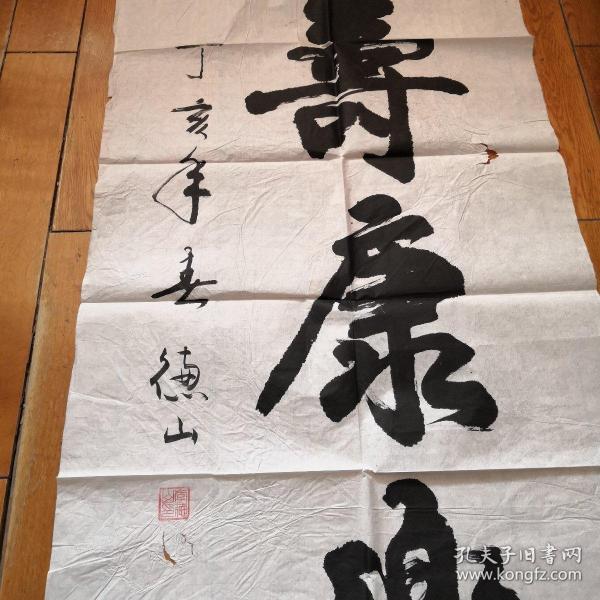 壽康
丁亥年春 德山
孔夫子旧书网
www.kongfz.com